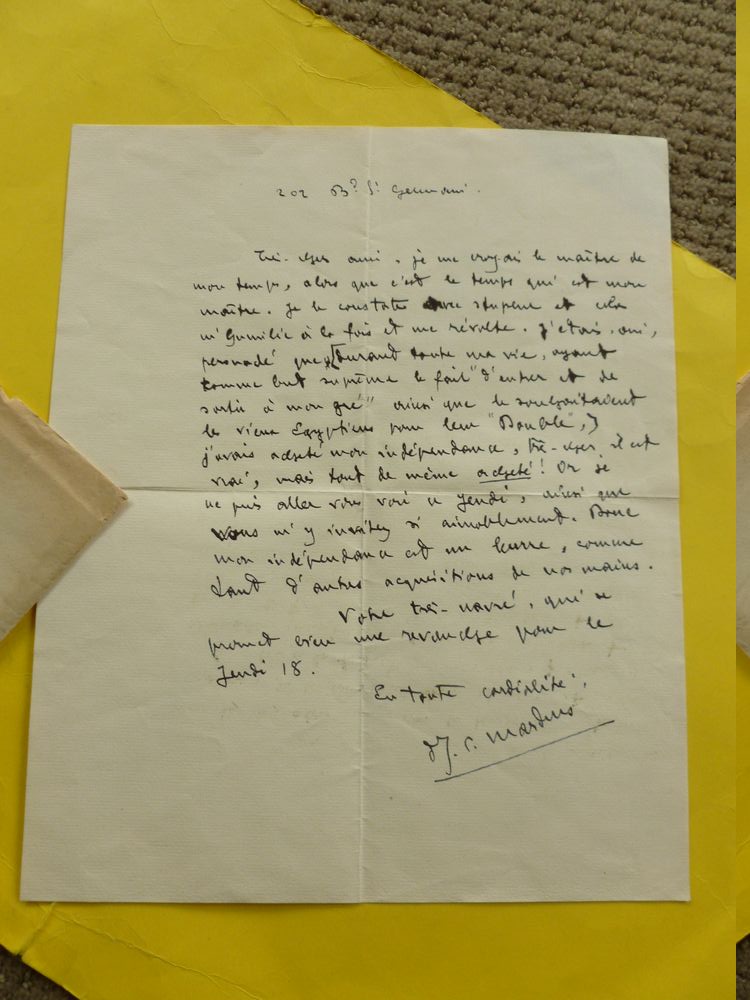 202 Bd St Germain.
Très-cher ami, je me croyais le maître de
mon temps, alors que c'est le temps qui est mon
maître. Je le constate avec stupeur et cela
m'humilie à la fois et me révolte. J'étais, ami,
persuadé que, [durant toute ma vie, ayant
comme but suprême le fait "d'entrer et de
sortir à mon gré" ainsi que le souhaitaient
les vieux Egyptiens pour leur "Double",]
j'avais acheté mon indépendance, très-cher, il est
vrai, mais tout de même acheté! Or je
ne puis aller vous voir ce Jeudi, ainsi que
vous m'y invitez si aimablement. Donc
mon indépendance est un leurre, comme
tant d'autres acquisitions de nos mains.
Votre très-navré, qui se
promet bien une revanche pour le
Jeudi 18.
En toute cordialité,
J. C. Mardrus